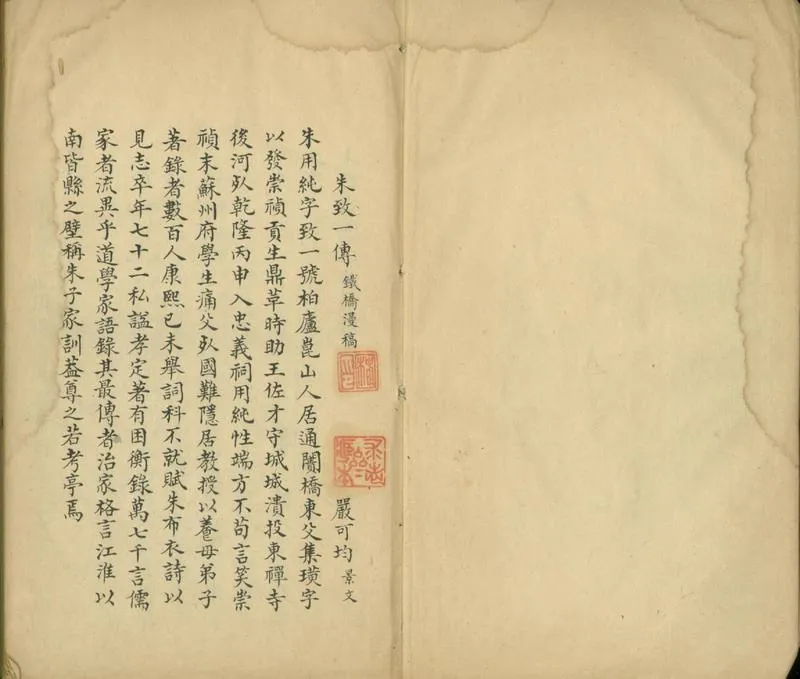 朱致一傳 鐵橋漫稿 嚴可均 景文
朱用純字致一號柏廬崑山人居通闠橋東父集璜字
以發崇禎貢生鼎革時助王佐才守城城潰投東禪寺
後河死乾隆丙申入忠義祠用純性端方不苟言笑崇
禎末蘇州府學生痛父死國難隱居教授以養母弟子
著錄者數百人康熙己未舉詞科不就賦朱布衣詩以
見志卒年七十二私謚孝定著有困衡錄萬七千言儒
家者流異乎道學家語錄其最傳者治家格言江淮以
南皆縣之壁稱朱子家訓葢尊之若考亭焉